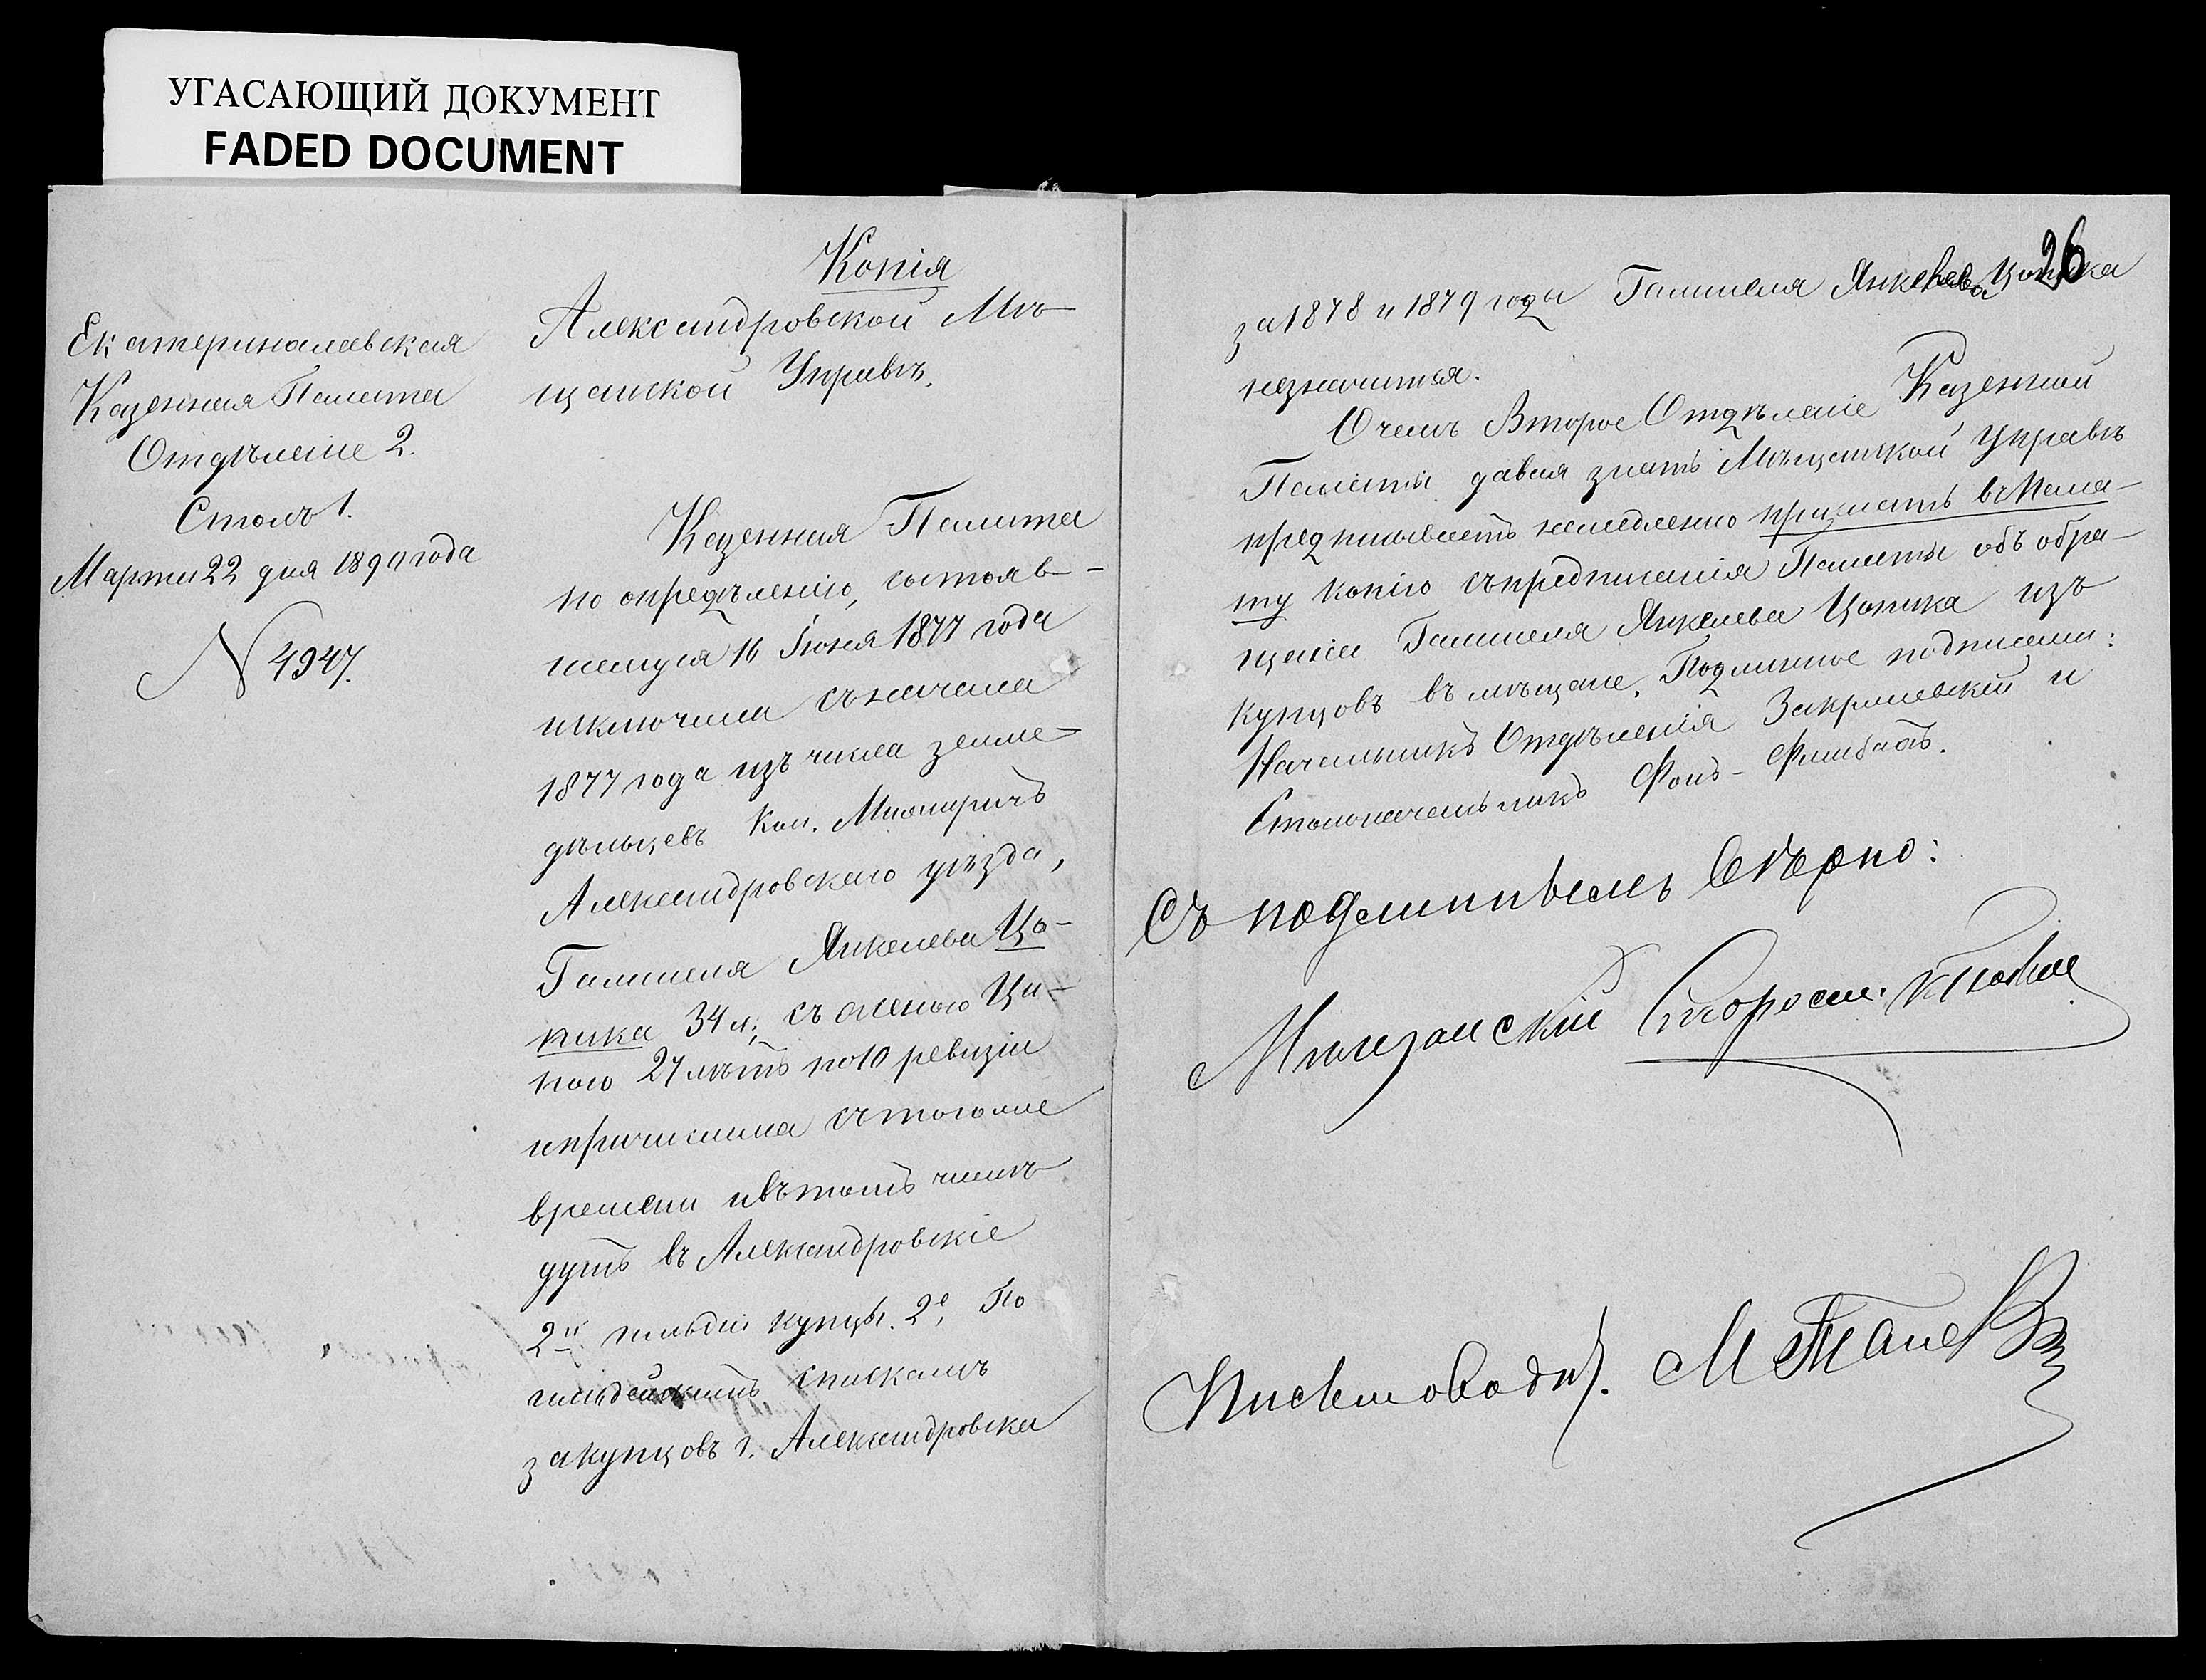 УГАСАЮЩИЙ ДОКУМЕНТ
FADED DOCUMENT
Копія
Екатеринославская
Казенная Палата
Отдѣленіе 2.
Столъ 1.
Марта 22 дня 1890 года
N 4947.
Александровской Мѣ-
щанской Управѣ.
Казенная Палата
по опредѣленію, состояв-
шемуся 16 Іюня 1877 года
исключила съ начала
1877 года изъ числа земле-
дѣльцевъ Кол.
Александровскаго уѣзда,
Гамшея Янкелева Цо-
пика 34 л; съ женою Ци-
пою 27 лѣтъ по 10 ревизіи
и причислила съ того же
времени и въ томъ числѣ
душъ въ Александровскіе
2й гильдіи купцы. 2е, По
гильдейскимъ спискамъ
за купцовъ г. Александровска
26
за 1878 и 1879 годы Гамшея Янкелева Цопика
незначится.
О чемъ Второе Отдѣленіе Казенной
Палаты давая знать Мѣщанской Управѣ
предписываетъ немедленно прислать въ Пала-
ту копію съ предписанія Палаты объ обра-
щеніи Гамшея Янкелева Цопика изъ
купцовъ въ мѣщане. Подлинное подписали:
Начальникъ Отдѣленія Закржевскій и
Столоначальникъ Фонъ-
Съ подлиннымъ вѣрно:
Мѣщанскій Старост.
Письмовод.